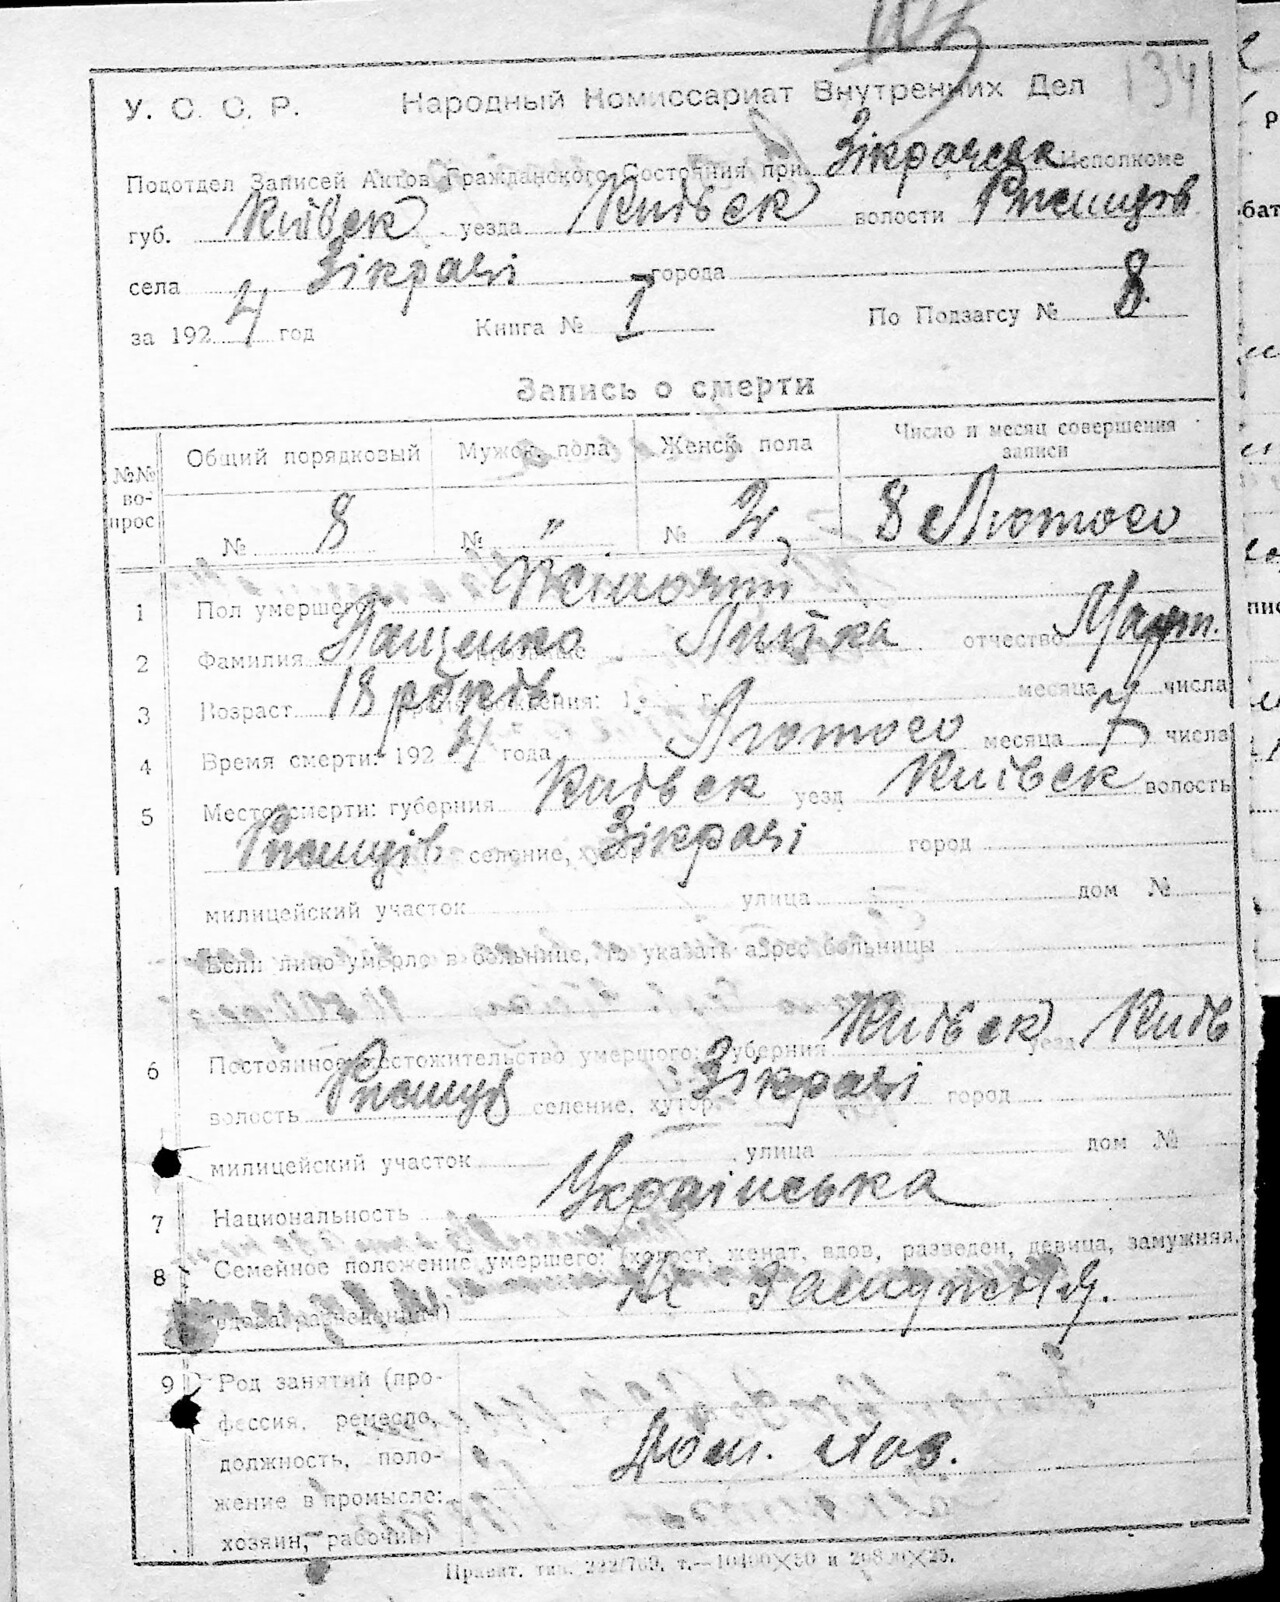 134
У. С. С. Р. Народный Комиссариат Внутренних Дел
Подотдел Записей Актов Гражданского Состояния при Зікрачевск Исполкоме
губ. Київск уезда Київск волости Ржищів
села Зікрачі города
за 1924 год Книга № 1 По Подзагсу № 8
Запись о смерти
№№ вопрос Общий порядковый Мужск. пола Женск пола Число и месяц совершения записи
№ 8 № " № 2 8 Лютого
1 Пол умершего Жіночий
2 Фамилия Пащенко отчество Март.
3 Возраст 18 років рождения: 1 г. месяца числа
4 Время смерти: 1924 года Лютого месяца 7 числа
5 Место смерти: губерния Київск уезд Київск волость
Ржищів селение, хутор Зікрачі город
милицейский участок улица дом №
Если лицо умерло в больнице, то указать адрес больницы
6 Постоянное местожительство умершого: губерния Київск уезд Київ
волость Ржищів селение, хутор Зікрачі город
милицейский участок улица дом №
7 Национальность Українська
8 Семейное положение умершего: (холост, женат, вдов, разведен, девица, замужняя,
вдова, разведенная) Не Замужняя.
9 Род занятий (про-
фессия, ремесло,
должность, поло-
жение в промысле:
хозяин, рабочий)
Дом. Хаз.